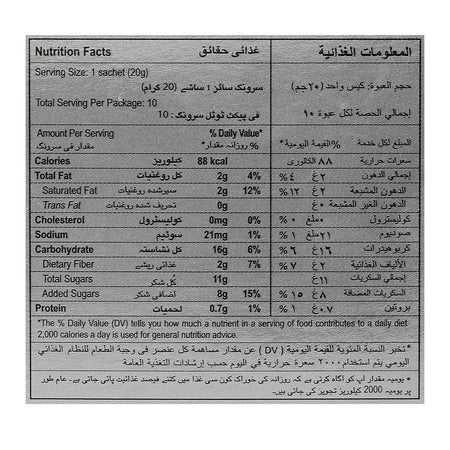 Nutrition Facts غذائی حقائق المعلومات الغذائية
Serving Size: 1 sachet (20g) سرونگ سائز: 1 ساشے (20 گرام) حجم العبوة: كيس واحد (٢٠جم)
Total Serving Per Package: 10 فی پیکٹ ٹوٹل سرونگ: 10 إجمالي الحصة لكل عبوة ١٠
Amount Per Serving مقدار فی سرونگ % Daily Value* % روزانہ مقدار* المبلغ لكل خدمة %القيمة اليومية*
Calories کیلوریز 88 kcal سعرات حرارية ٨٨ كالوري
Total Fat کل روغنیات 2g 4% الدهون ٢غ ٤%
Saturated Fat سیرشدہ روغنیات 2g 12% الدهون المشبعة ٢غ ١٢%
Trans Fat تحریف شدہ روغنیات 0g الدهون الغير المشبعة ٠غ
Cholesterol کولیسٹرول 0mg 0% كوليسترول ٠ملغ ٠%
Sodium سوڈیم 21mg 1% صوديوم ٢١ملغ ١%
Carbohydrate کل نشاستہ 16g 6% كربوهيدرات ١٦غ ٦%
Dietary Fiber غذائی ریشے 2g 7% الألياف الغذائية ٢غ ٧%
Total Sugars کل شکر 11g إجمالي السكريات ١١غ
Added Sugars اضافی شکر 8g 15% السكريات المضافة ٨غ ١٥%
Protein لحمیات 0.7g 1% بروتين ٠.٧غ ١%
*The % Daily Value (DV) tells you how much a nutrient in a serving of food contributes to a daily diet
2,000 calories a day is used for general nutrition advice.
*تخبر النسبة المئوية للقيمة اليومية (DV) عن مقدار مساهمة كل عنصر في وجبة الطعام للنظام الغذائي
اليومي يتم استخدام ٢٠٠٠ سعرة حرارية في اليوم حسب إرشادات التغذية العامة
* یومیہ مقدار آپ کو آگاہ کرتی ہے کہ روزانہ کی خوراک کون سی غذا میں کتنے فیصد غذائیت پائی جاتی ہے۔ عام طور
پر یومیہ 2000 کیلوریز تجویز کی جاتی ہے۔